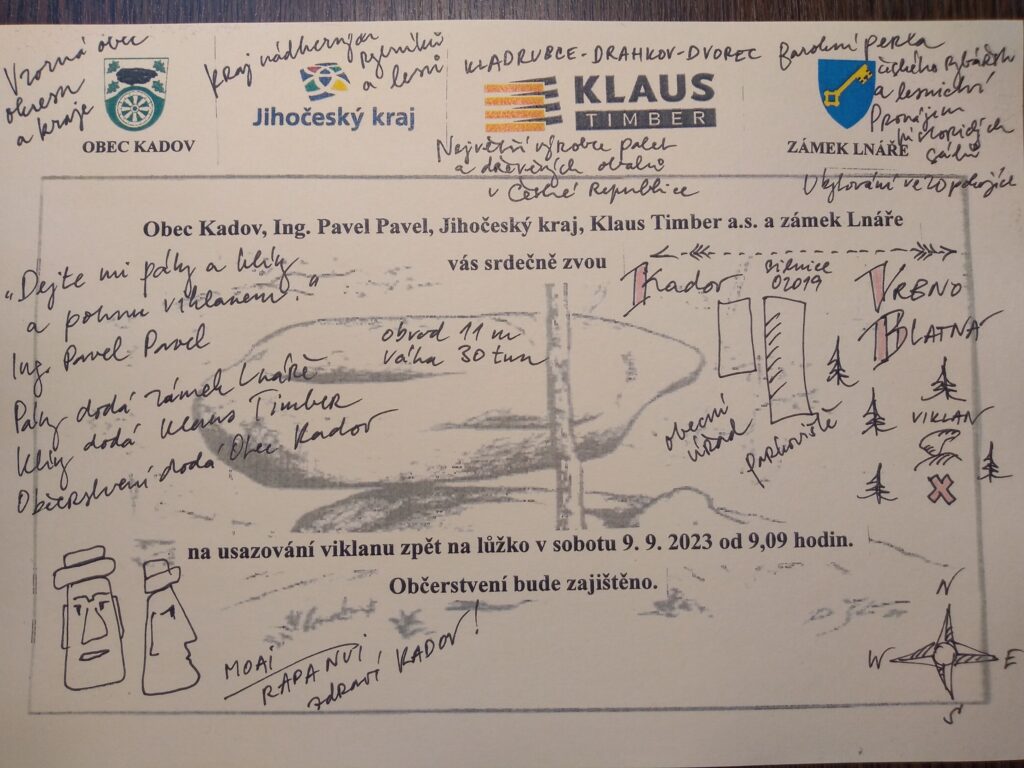 Vzorná obec
okresu
a kraje
OBEC KADOV
Kraj nádherných
rybníků
a lesů
Jihočeský kraj
KLADRUBCE-DRAHKOV-DVOREC
KLAUS
TIMBER
Největší výrobce palet
a dřevěných obalů
v České Republice
Barokní perla
českého rybářství
a lesnictví
Pronájem
historických
sálů
ZÁMEK LNÁŘE
Ubytování ve 20 pokojích
Obec Kadov, Ing. Pavel Pavel, Jihočeský kraj, Klaus Timber a.s. a zámek Lnáře
vás srdečně zvou
"Dejte mi páky a klíny
a pohnu viklanem."
Ing. Pavel Pavel
Páky dodá zámek Lnáře
Klíny dodá Klaus Timber
Občerstvení dodá Obec Kadov
obvod 11 m
váha 30 tun
Kadov
silnice
02019
VRBNO
BLATNÁ
obecní
úřad
parkoviště
VIKLAN
X
na usazování viklanu zpět na lůžko v sobotu 9. 9. 2023 od 9,09 hodin.
Občerstvení bude zajištěno.
MOAI
RAPA NUI
zdraví KADOV!
N
W
E
S